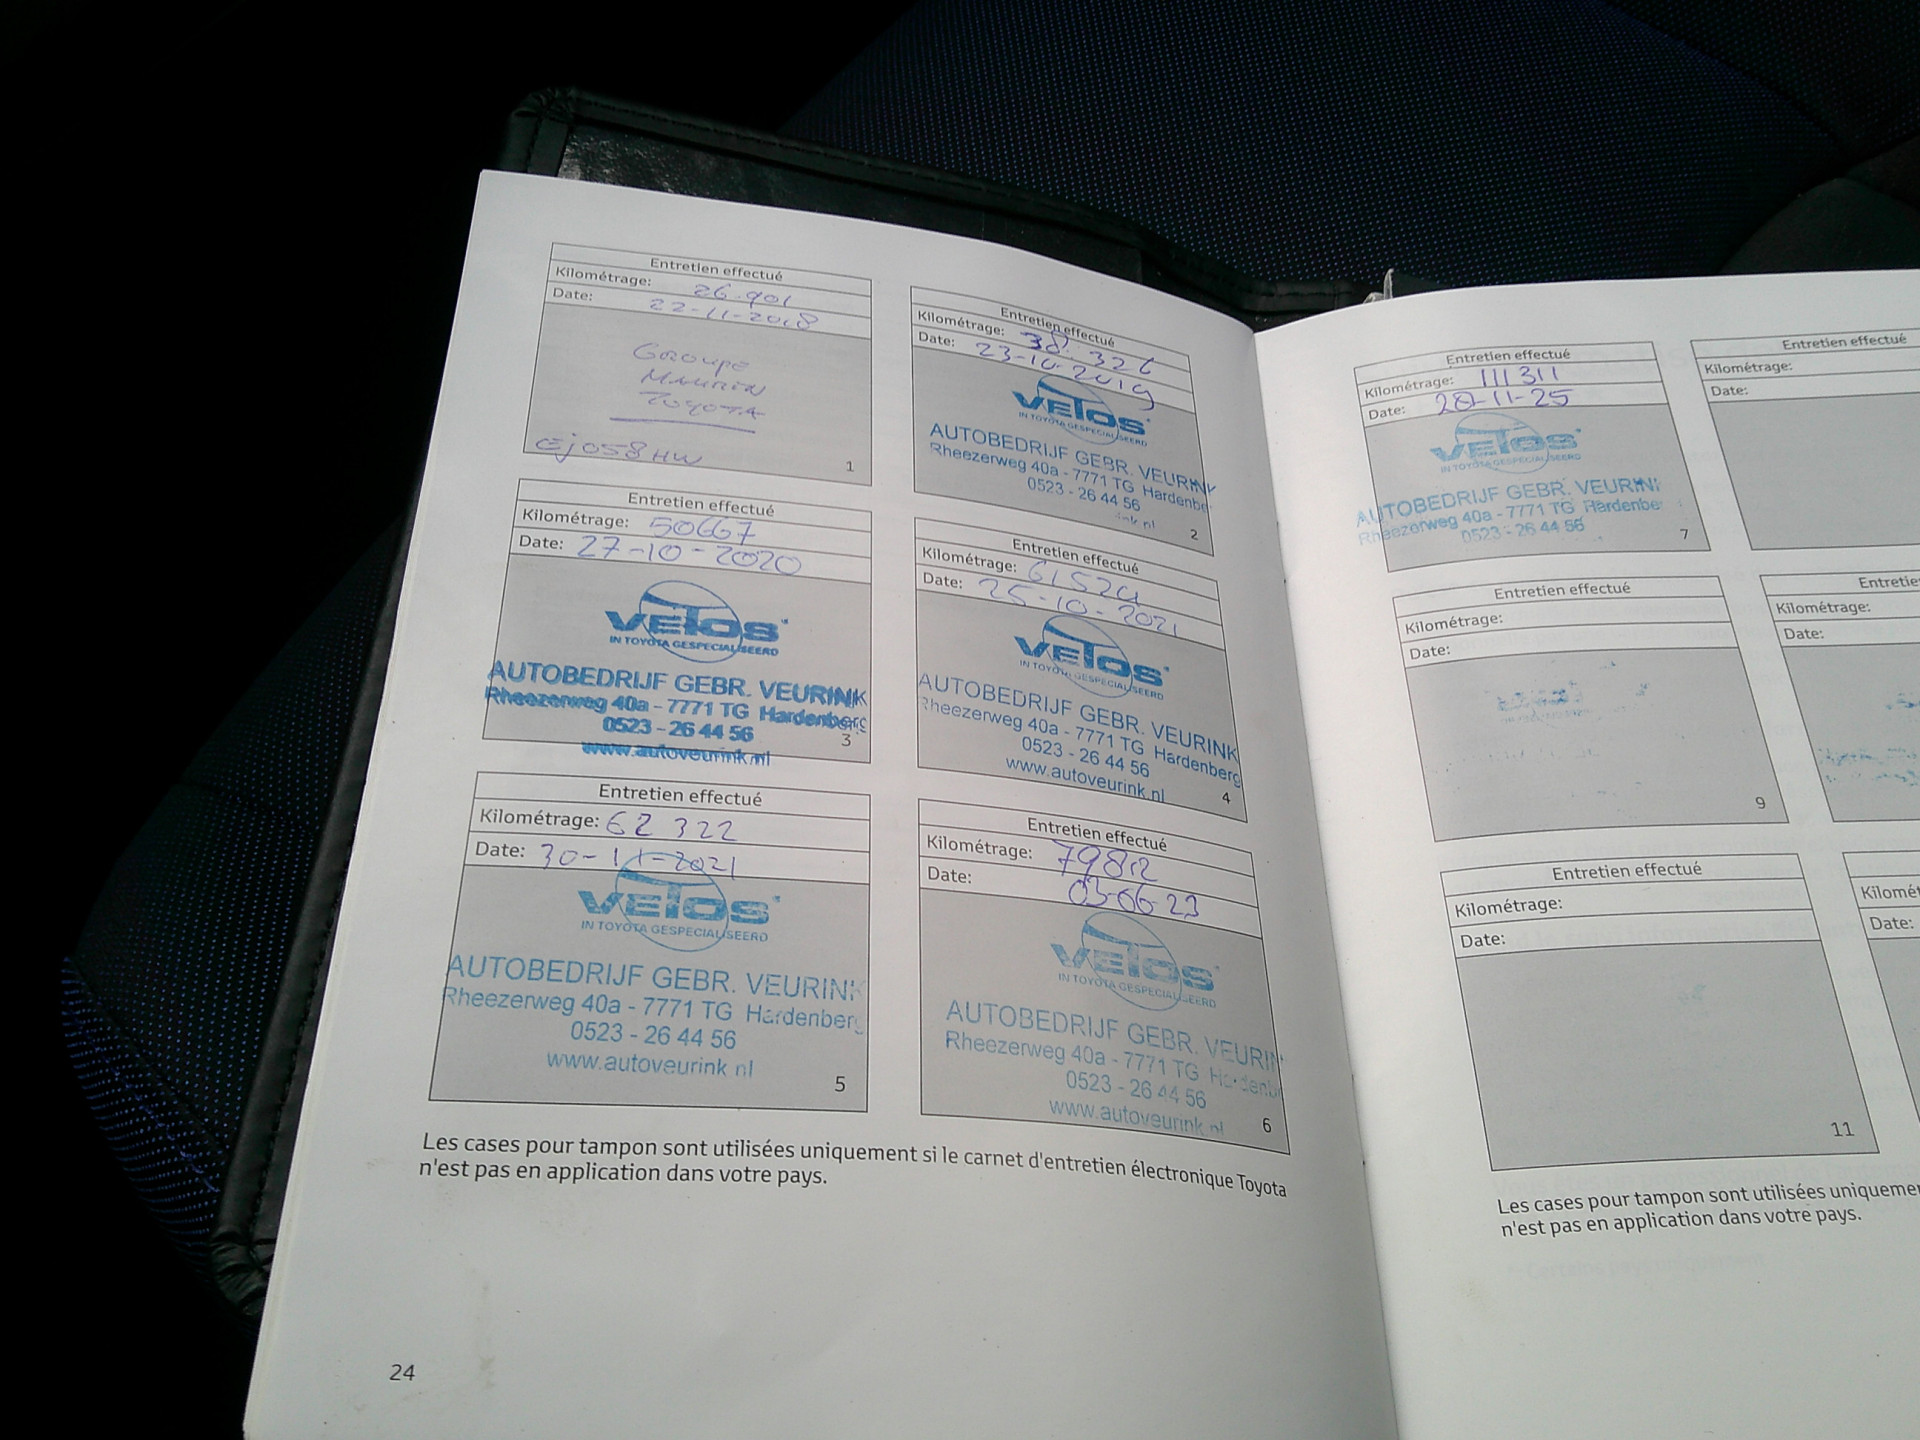 Entretien effectué
Kilométrage: 26.901
Date: 22-11-2018
GROUPE
MAURIN
TOYOTA
EJ058HW
1
Entretien effectué
Kilométrage: 38.326
Date: 23-10-2019
VeTos
IN TOYOTA GESPECIALISEERD
AUTOBEDRIJF GEBR. VEURINK
Rheezerweg 40a - 7771 TG Hardenbe
0523 - 26 44 56
ink.nl
2
Entretien effectué
Kilométrage: 50667
Date: 27-10-2020
VeTos
IN TOYOTA GESPECIALISEERD
AUTOBEDRIJF GEBR. VEURINK
Rheezerweg 40a - 7771 TG Hardenberg
0523 - 26 44 56
www.autoveurink.nl
3
Entretien effectué
Kilométrage:
Date: 25-10-2021
VeTos
IN TOYOTA GESPECIALISEERD
AUTOBEDRIJF GEBR. VEURINK
Rheezerweg 40a - 7771 TG Hardenberg
0523 - 26 44 56
www.autoveurink.nl
4
Entretien effectué
Kilométrage: 62 322
Date: 30-11-2021
VeTos
IN TOYOTA GESPECIALISEERD
AUTOBEDRIJF GEBR. VEURINK
Rheezerweg 40a - 7771 TG Hardenberg
0523 - 26 44 56
www.autoveurink.nl
5
Entretien effectué
Kilométrage: 79812
Date: 03-06-23
VeTos
IN TOYOTA GESPECIALISEERD
AUTOBEDRIJF GEBR. VEURIN
Rheezerweg 40a - 7771 TG Hardenb
0523 - 26 44 56
www.autoveurink.nl
6
Les cases pour tampon sont utilisées uniquement si le carnet d'entretien électronique Toyota
n'est pas en application dans votre pays.
24
Entretien effectué
Kilométrage: 111311
Date: 28-11-25
VeTos
IN TOYOTA GESPECIALISEERD
AUTOBEDRIJF GEBR. VEURINK
Rheezerweg 40a - 7771 TG Hardenbe
0523 - 26 44 56
7
Entretien effectué
Kilométrage:
Date:
Entretien effectué
Kilométrage:
Date:
9
Entretie
Kilométrage:
Date:
Entretien effectué
Kilométrage:
Date:
11
Kilomét
Date:
Les cases pour tampon sont utilisées uniqueme
n'est pas en application dans votre pays.